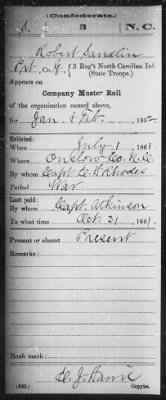 (Confederate.)
S 3 N.C.
Robert Sandlin
Pvt, Co. G, 3 Reg't North Carolina Inf.
(State Troops.)
Appears on
Company Muster Roll
of the organization named above,
for Jan. & Feb. 1862.
Enlisted:
When July 1 1861
Where Onslow Co. N.C.
By whom Capt. E. H. Rhodes
Period War
Last paid:
By whom Capt. Atkinson
To what time Oct. 31 1861
Present or absent Present
Remarks:
Book mark:
(642) Copyist.